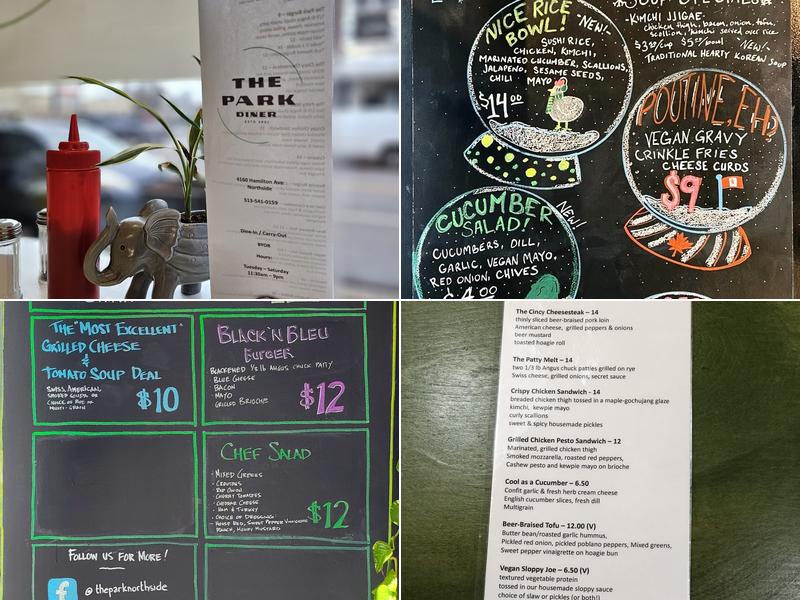 THE
PARK
DINER
4160 Hamilton Ave
Northside
513-541-0159
Dine-In / Carry-Out
BYOB
Hours:
Tuesday – Saturday
11:30am – 9pm
NICE RICE
BOWL!
NEW!
SUSHI RICE,
CHICKEN, KIMCHI,
MARINATED CUCUMBER, SCALLIONS,
JALAPENO, SESAME SEEDS,
CHILI MAYO
$14.00
SOUP SPECIALS
-KIMCHI JJIGAE-
chicken thigh, bacon, onion, tofu,
scallion, kimchi served over rice
$3.50/cup $5.50/bowl NEW!
TRADITIONAL HEARTY KOREAN SOUP
POUTINE, EH?
VEGAN GRAVY
CRINKLE FRIES
CHEESE CURDS
$9
CUCUMBER
SALAD!
NEW!
CUCUMBERS, DILL,
GARLIC, VEGAN MAYO,
RED ONION, CHIVES
$4.00
THE "MOST EXCELLENT"
GRILLED CHEESE
&
TOMATO SOUP DEAL
SWISS, AMERICAN,
SMOKED GOUDA ON
CHOICE OF RYE OR
MULTI-GRAIN
$10
BLACK 'N BLEU
BURGER
BLACKENED 1/2 lb ANGUS CHUCK PATTY
BLUE CHEESE
BACON
MAYO
GRILLED BRIOCHE
$12
CHEF SALAD
- MIXED GREENS
- CROUTONS
- RED ONION
- CHERRY TOMATOES
- CHEDDAR CHEESE
- HAM & TURKEY
- CHOICE OF DRESSING:
HOUSE RED, SWEET PEPPER VINAIGRETTE
RANCH, HONEY MUSTARD
$12
FOLLOW US FOR MORE!
f @theparknorthside
The Cincy Cheesesteak – 14
thinly sliced beer-braised pork loin
American cheese, grilled peppers & onions
beer mustard
toasted hoagie roll
The Patty Melt – 14
two 1/3 lb Angus chuck patties grilled on rye
Swiss cheese, grilled onions, secret sauce
Crispy Chicken Sandwich - 14
breaded chicken thigh tossed in a maple-gochujang glaze
kimchi, kewpie mayo
curly scallions
sweet & spicy housemade pickles
Grilled Chicken Pesto Sandwich – 12
Marinated, grilled chicken thigh
Smoked mozzarella, roasted red peppers,
Cashew pesto and kewpie mayo on brioche
Cool as a Cucumber – 6.50
Confit garlic & fresh herb cream cheese
English cucumber slices, fresh dill
Multigrain
Beer-Braised Tofu – 12.00 (V)
Butter bean/roasted garlic hummus,
Pickled red onion, pickled poblano peppers, Mixed greens,
Sweet pepper vinaigrette on hoagie bun
Vegan Sloppy Joe – 6.50 (V)
textured vegetable protein
tossed in our housemade sloppy sauce
choice of slaw or pickles (or both!)